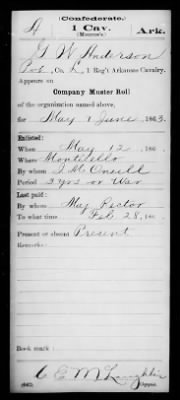 (Confederate.)
A 1 Cav. Ark.
(Monroe's.)
G W Anderson
Pvt, Co. L, 1 Reg't Arkansas Cavalry.
Appears on
Company Muster Roll
of the organization named above,
for May & June, 1863.
Enlisted:
When May 12, 186 .
Where Monticello
By whom
Period 3 yrs or War
Last paid:
By whom Maj Rector
To what time Feb 28, 186 .
Present or absent Present
Remarks:
Book mark:
C E McLaughlin
(642) Copyist.